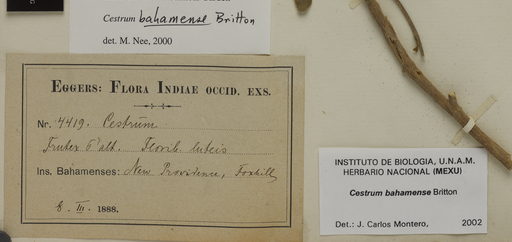 Cestrum bahamense Britton
det. M. Nee, 2000
EGGERS: FLORA INDIAE OCCID. EXS.
Nr. 4419. Cestrum
Frutex 5' alt. Florib. luteis
Ins. Bahamenses: New Providence, Foxhill
6. III. 1888.
INSTITUTO DE BIOLOGIA, U.N.A.M.
HERBARIO NACIONAL (MEXU)
Cestrum bahamense Britton
Det.: J. Carlos Montero, 2002